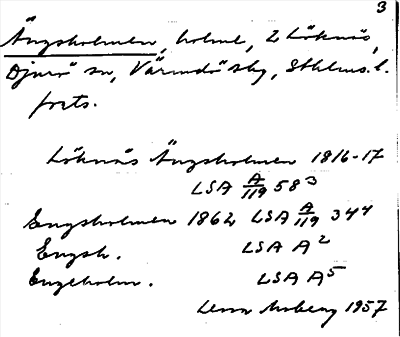 3
Ängsholmen, holme, 2 Löknäs,
Djurö sn, Värmdö skg, Sthlms l.
forts.
Löknäs Ängsholmen 1816-17
LSA A/119 58³
Engsholmen 1862 LSA A/119 344
Engsh. LSA A²
Engeholm. LSA A⁵
1957